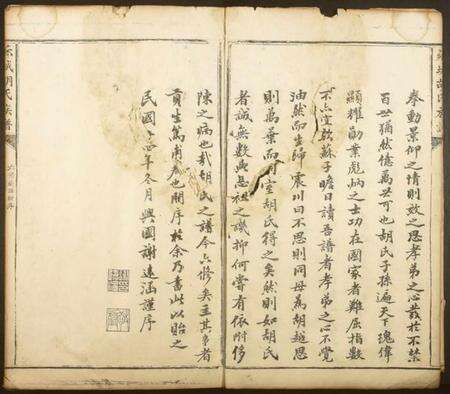 拳動景仰之情則效之思孝弟之心發於不禁
百世猶然億萬世可也胡氏子孫遍天下瑰偉
顯耀勛業彪炳之士功在國家者難屈指數
不亦宜歟蘇子瞻曰讀吾譜者孝弟之心不覺
油然而生歸震川曰不思則同母為胡越思
則萬葉而一室胡氏得之矣然則如胡氏
者誠無數典忘祖之譏抑何嘗有依附侈
陳之病也哉胡氏之譜今六修矣主其事者
貢生篤甫君也問序於余乃書此以貽之
民國十四年冬月興國謝遠涵謹序
城胡氏族譜